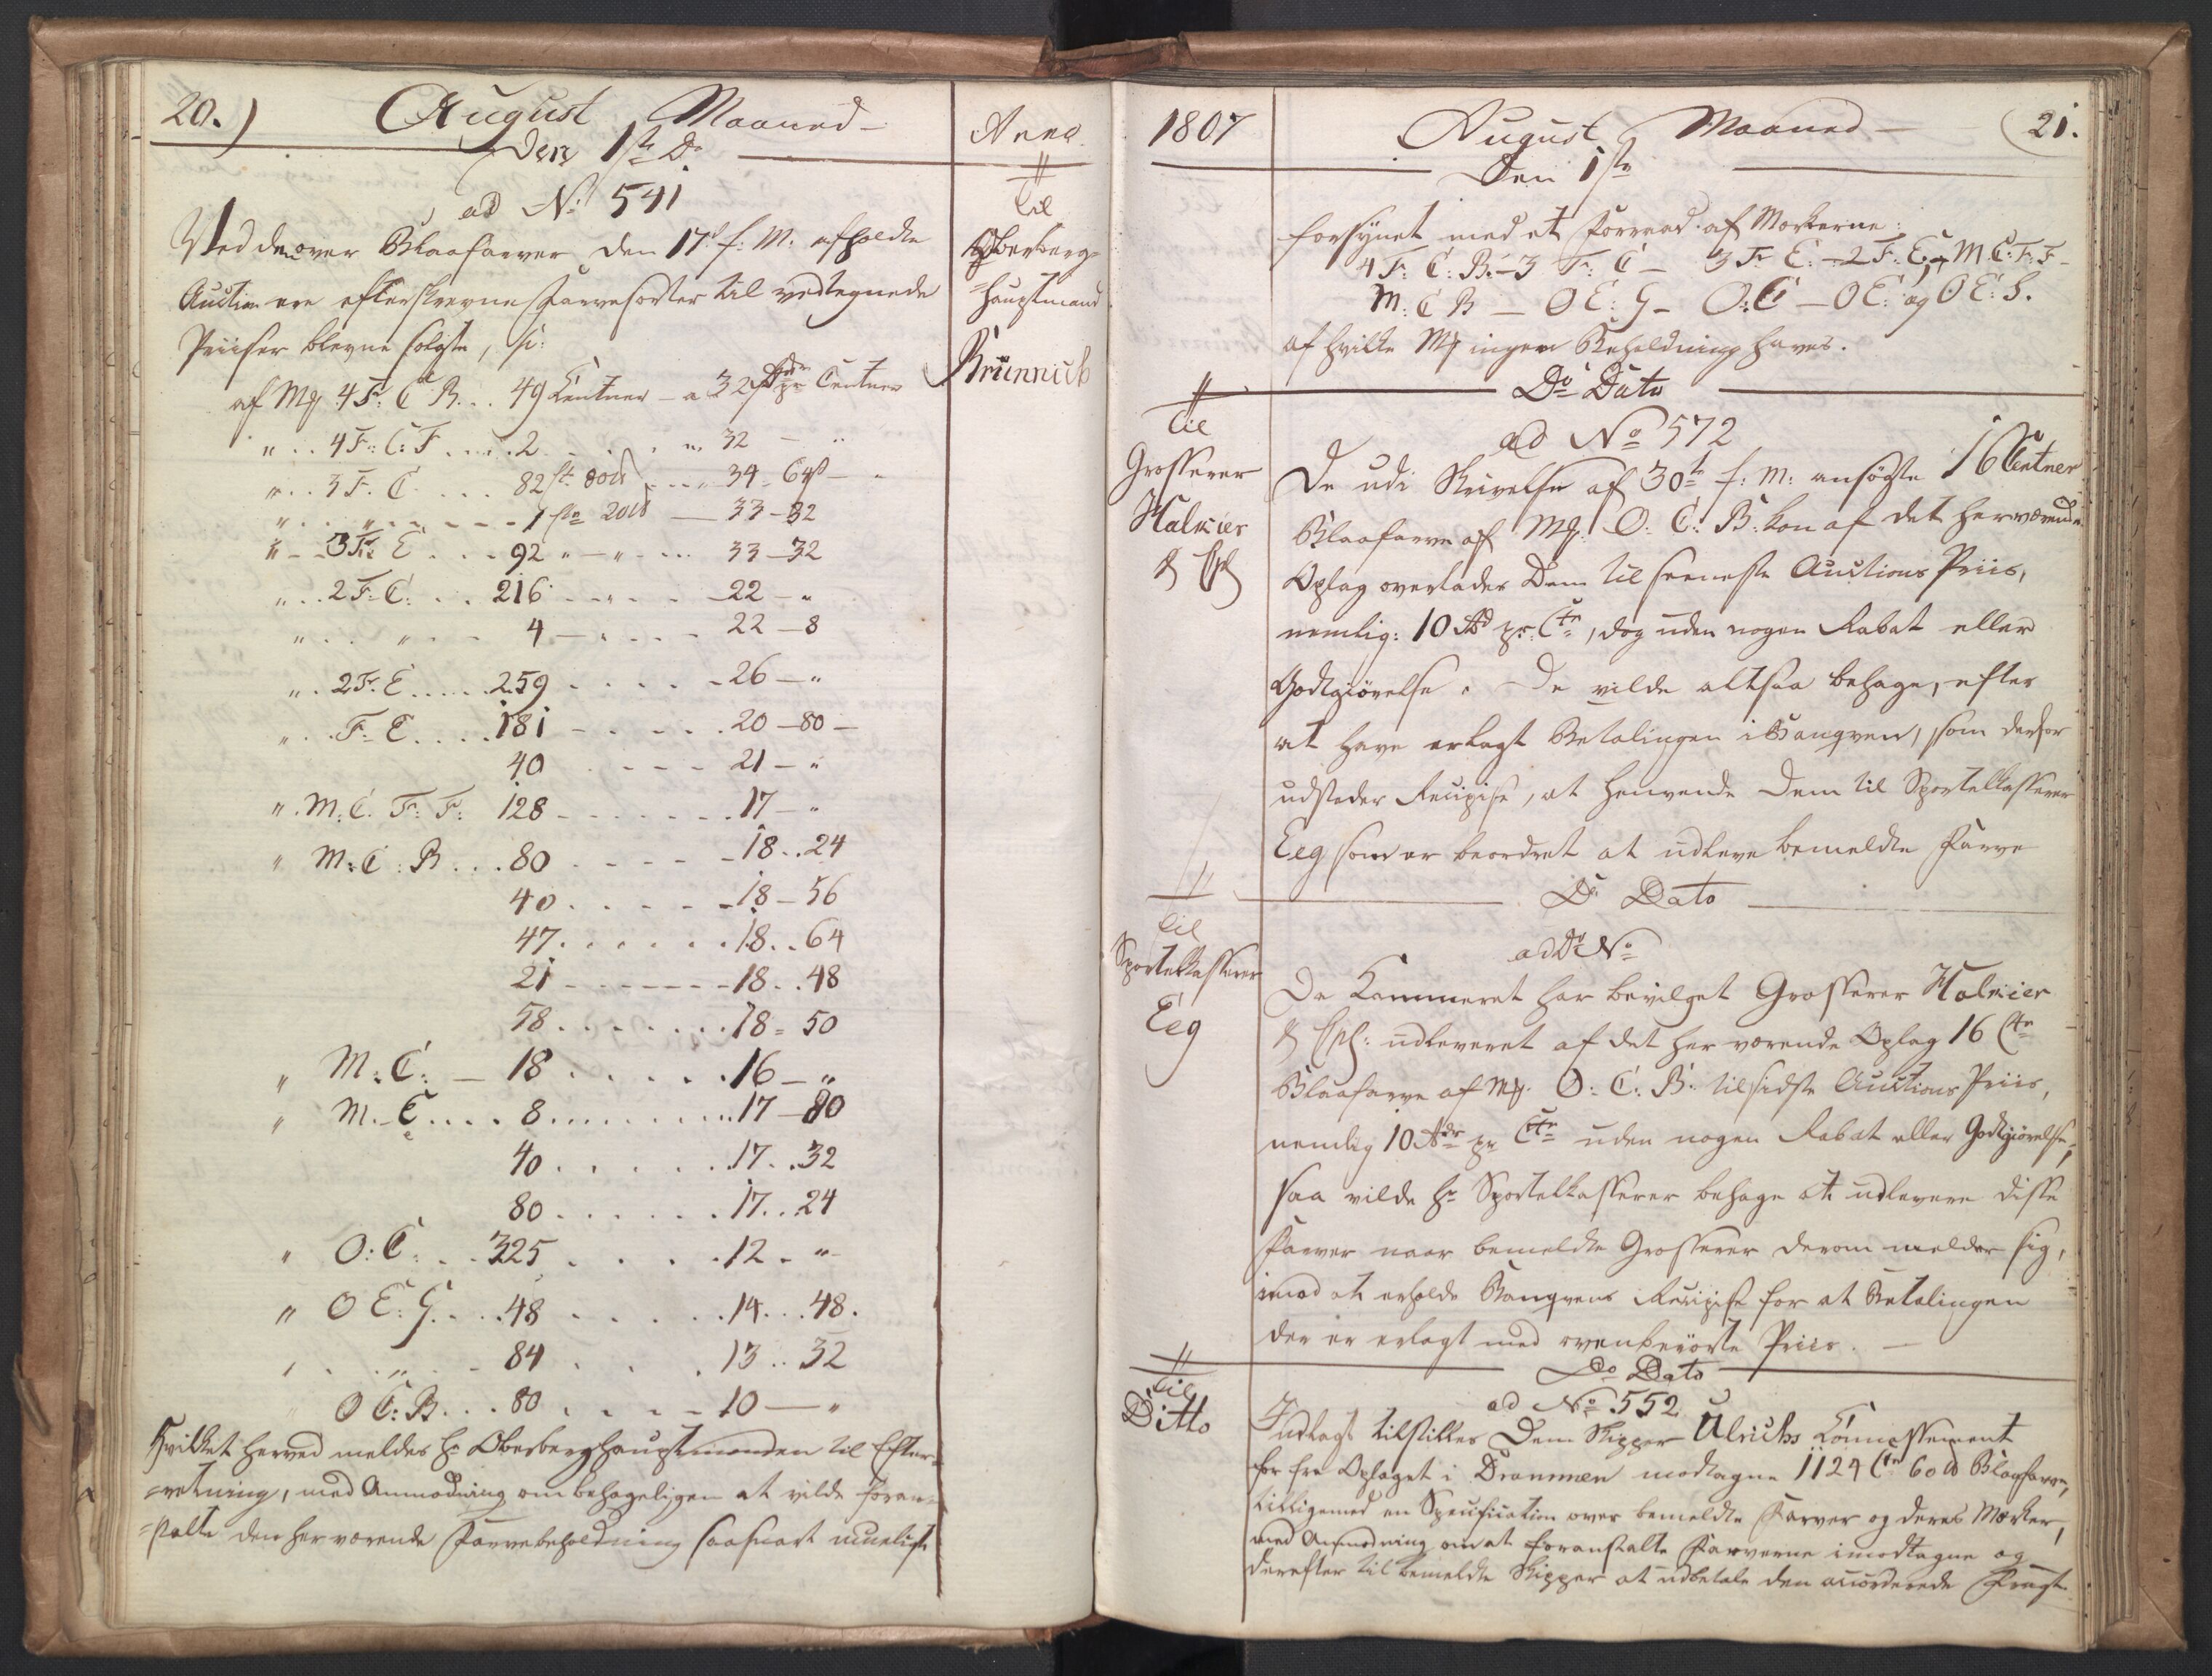 20.) August Maaned
Den 1ste Do
Anno
ad No 541
Til
Oberberg-
hauptmand
Brünnich
Ved den over Blaafarver den 17d f: M. afholdte
Auction ere efterskrevne Farvesorter til vedtegnede
Priiser blevne solgte, s:
af Mk 4 F: C B. . . 49 Centner - a 32 Rdr pr Centner
" . . 4 F: C: F . . . . . 2 . . . . " 32 - "
" . . 3 F. C . . . . 82 80 . . . . 34 - 64 ß - "
" . . " . - - - - 1 20 — 33 - 32
" - - 3 F: E . . . . 92 " - " - . . . 33 - 32
" . . 2 F: C: . . 216 - - " . - - 22 - "
" . . " . . - 4 - " - . - 22 - 8
" . 2 F. E . . . . . 259 - . . . . - 26 - "
" . . F. E . . . . 181 - . - . . . 20 - 80 -
40 . - - - 21 - "
" . M: C. F: F: 128 - - - - - - . 17 - "
" M: C: B . . . 80 . - - - - 18 . . 24
40 . . . . - - 18 - 56
47 . . . . . . . 18 . . 64
21 - - - - - - - 18 . . 48
58 . . . . . . . . 18 = 50
" M: C: - 18 . . . . . . 16 - "
" M. E . . . . 8 . . . . . . . . . 17 - 80
40 . . . . . . 17 . . 32
80 . . . . . . 17 . . 24
" O: C: . . 325 . . . . . 12 . "
" O E: G. . . . 48 . . . . . . 14 . . . 48.
" . . " . - 84 . . . . 13 . . 32
O C: B . . . 80 . . - - 10 — "
Hvilket herved meldes Hr Oberberghauptmanden til Efter-
=retning, med Anmodning om behageligen at vilde foran-
=stalte den her værende Farvebeholdning saasnart mueligt
1807
August Maaned - 21.
Den 1ste
forsynet med et Forraad af Mærkerne:
4 F: C: B. - 3 F: C - 3 F: E: - 2 F: E: - M: C: F: F -
M: C B - O E: G - O: C - O E: og O E: S.
af hvilke Mk ingen Beholdning haves.
Do Dato
Til
Grosserer
Halvier
& Cp
ad No 572
De udi Skrivelse af 30te f: M: ansøgte 16 Centner
Blaafarve af Mk: O: C: B: kan af det herværende
Oplag overlades Dem til seeneste Auctions Priis,
nemlig: 10 Rd pr: Ctr, dog uden nogen Rabat eller
Godtgiørelse. De vilde altsaa behage, efter
at have erlagt Betalingen i Banqven, som derfor
udsteder Recipisse, at henvende Dem til Sportelkasserer
Eeg som er beordret at udleve bemeldte Farve
Do Dato
Til
Sportelkasserer
Eeg
ad Do No
Da Kammeret har bevilget Grosserer Halvier
& Cp: udleveret af det her værende Oplag 16 Ctr
Blaafarve af Mk: O: C: B: til sidste Auctions Priis,
nemlig 10 Rdr pr Ctr uden nogen Rabat eller Godtgiørelse,
saa vilde Hr Sportelkasserer behage at udlevere disse
Farver naar bemeldte Grosserer derom melder sig,
imod at erholde Banqvens Recipisse for at Betalingen
der er erlagt med ovenberørte Priis. -
Do Dato
Til
Ditto
ad No 552
Indlagt tilstilles Dem Skipper Ulrichs Connossement
for fra Oplaget i Drammen modtagne 1124 Ctr 60 Blaafarve,
tilligemed en Specification over bemeldte Farver og deres Mærker,
med Anmodning om at foranstalte Farverne imodtagne og
derefter til bemeldte Skipper at udbetale den accorderede Fragt